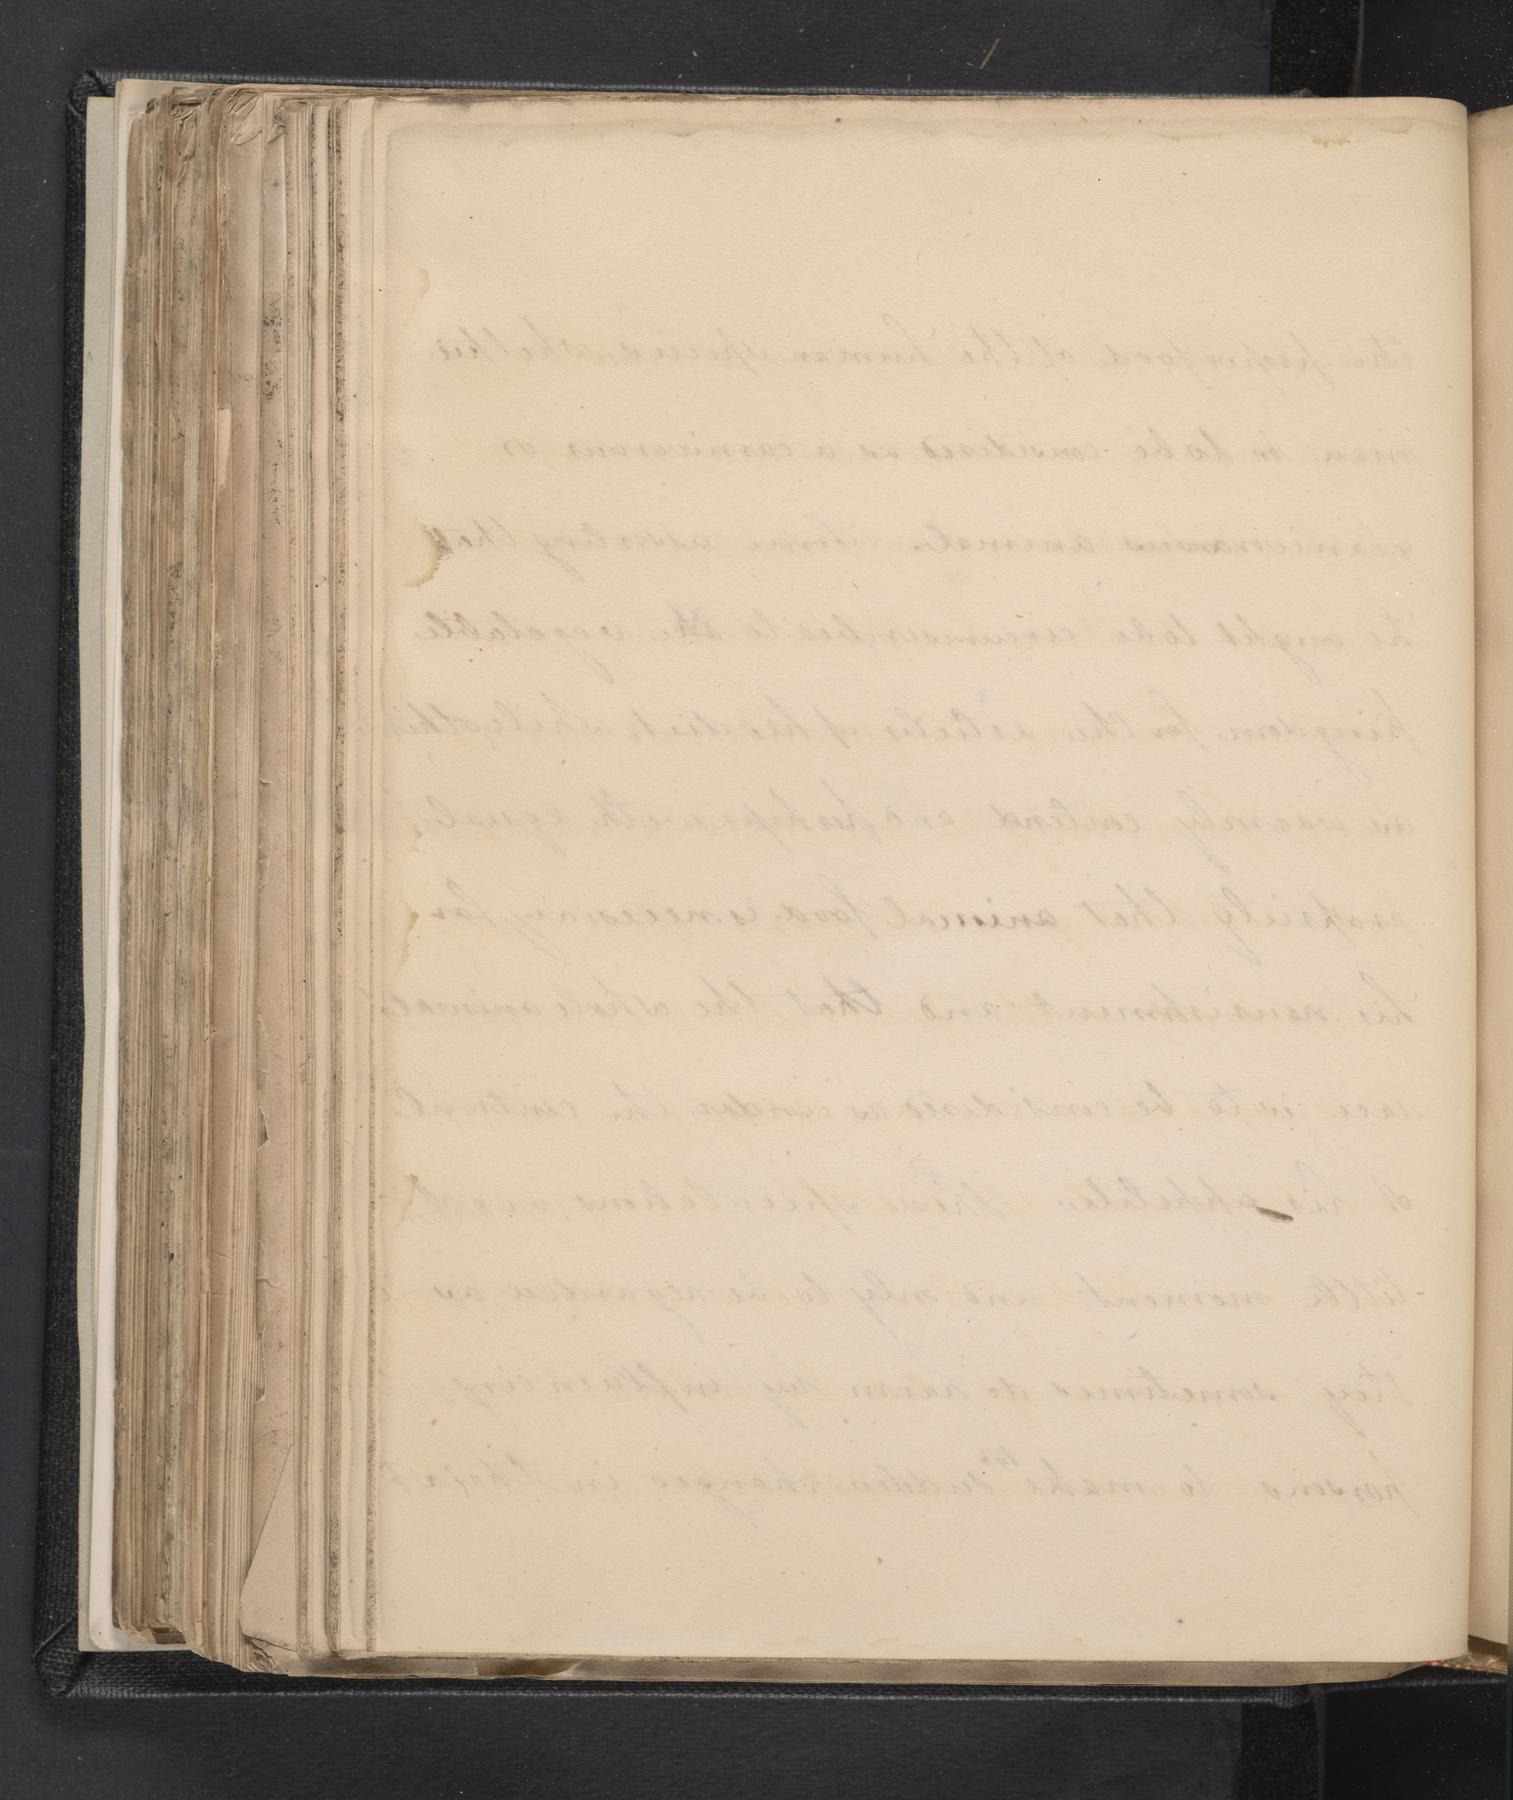 the proper food of the human species, whether
man is to be considered as a carnivorous or
granivorous animal. Some asserting that
he ought to be circumscribed to the vegetable
kingdom for the articles of his diet, while others
as warmly contend and perhaps with equal
propriety that animal food is necessary for
his nourishment, and that the whole animal
race is to be considered as under the controul
of his appetite. These speculations are of
little moment and only to be regarded as
they sometimes do harm by influencing
persons to make too sudden changes in their